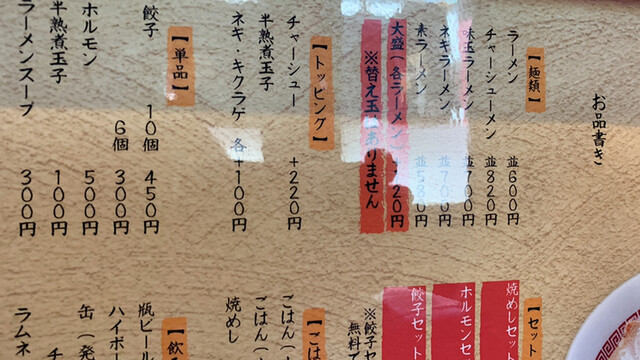 お品書き
【麺類】
ラーメン 並600円
チャーシューメン 並820円
味玉ラーメン 並700円
ネギラーメン 並700円
素ラーメン 並530円
大盛(各ラーメン)+120円
※替え玉はありません
【トッピング】
チャーシュー +220円
半熟煮玉子
ネギ キクラゲ 各+100円
【単品】
餃子 10個 450円
6個 300円
ホルモン 500円
半熟煮玉子 100円
ラーメンスープ 300円
【セット
焼めしセッ
ホルモンセ
餃子セット
※餃子セ
無料で
【ごは
ごはん(
ごはん(
焼めし
【飲
瓶ビール
ハイボー
缶(発
チ
ラムネ